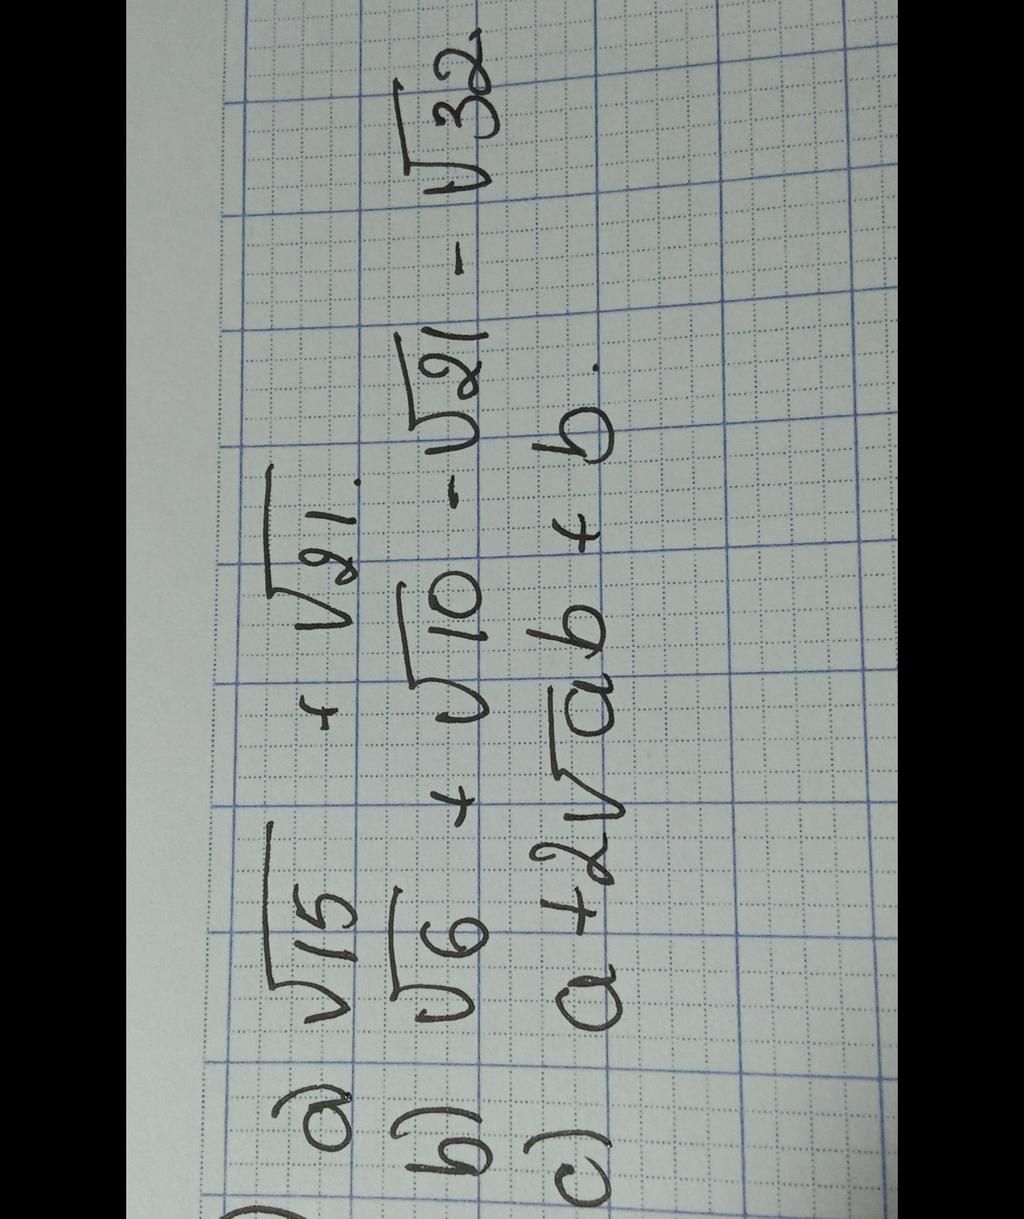 a) √15 + √21.
b) √6 + √10 - √21 - √32.
c) a + 2√ab + b.